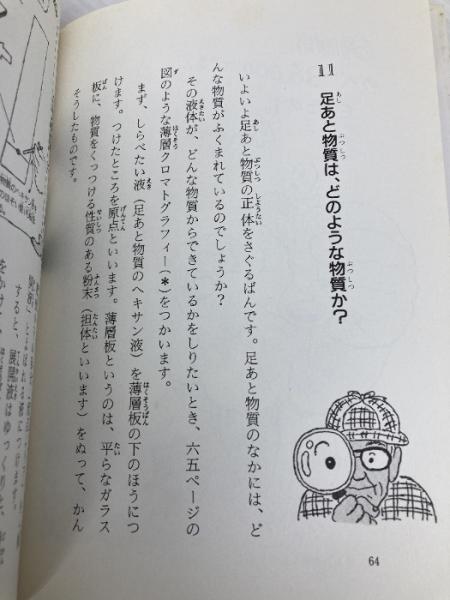 11
足あと物質は、どのような物質か？
いよいよ足あと物質の正体をさぐるばんです。足あと物質のなかには、ど
んな物質がふくまれているのでしょうか？
その液体が、どんな物質からできているかをしりたいとき、六五ページの
図のような薄層クロマトグラフィー（＊）をつかいます。
まず、しらべたい液（足あと物質のヘキサン液）を薄層板の下のほうにつ
けます。つけたところを原点といいます。薄層板というのは、平らなガラス
板に、物質をくっつける性質のある粉末（担体といいます）をぬって、かん
そうしたものです。
64
すると、
展開液はゆっくりと、
をかけて、